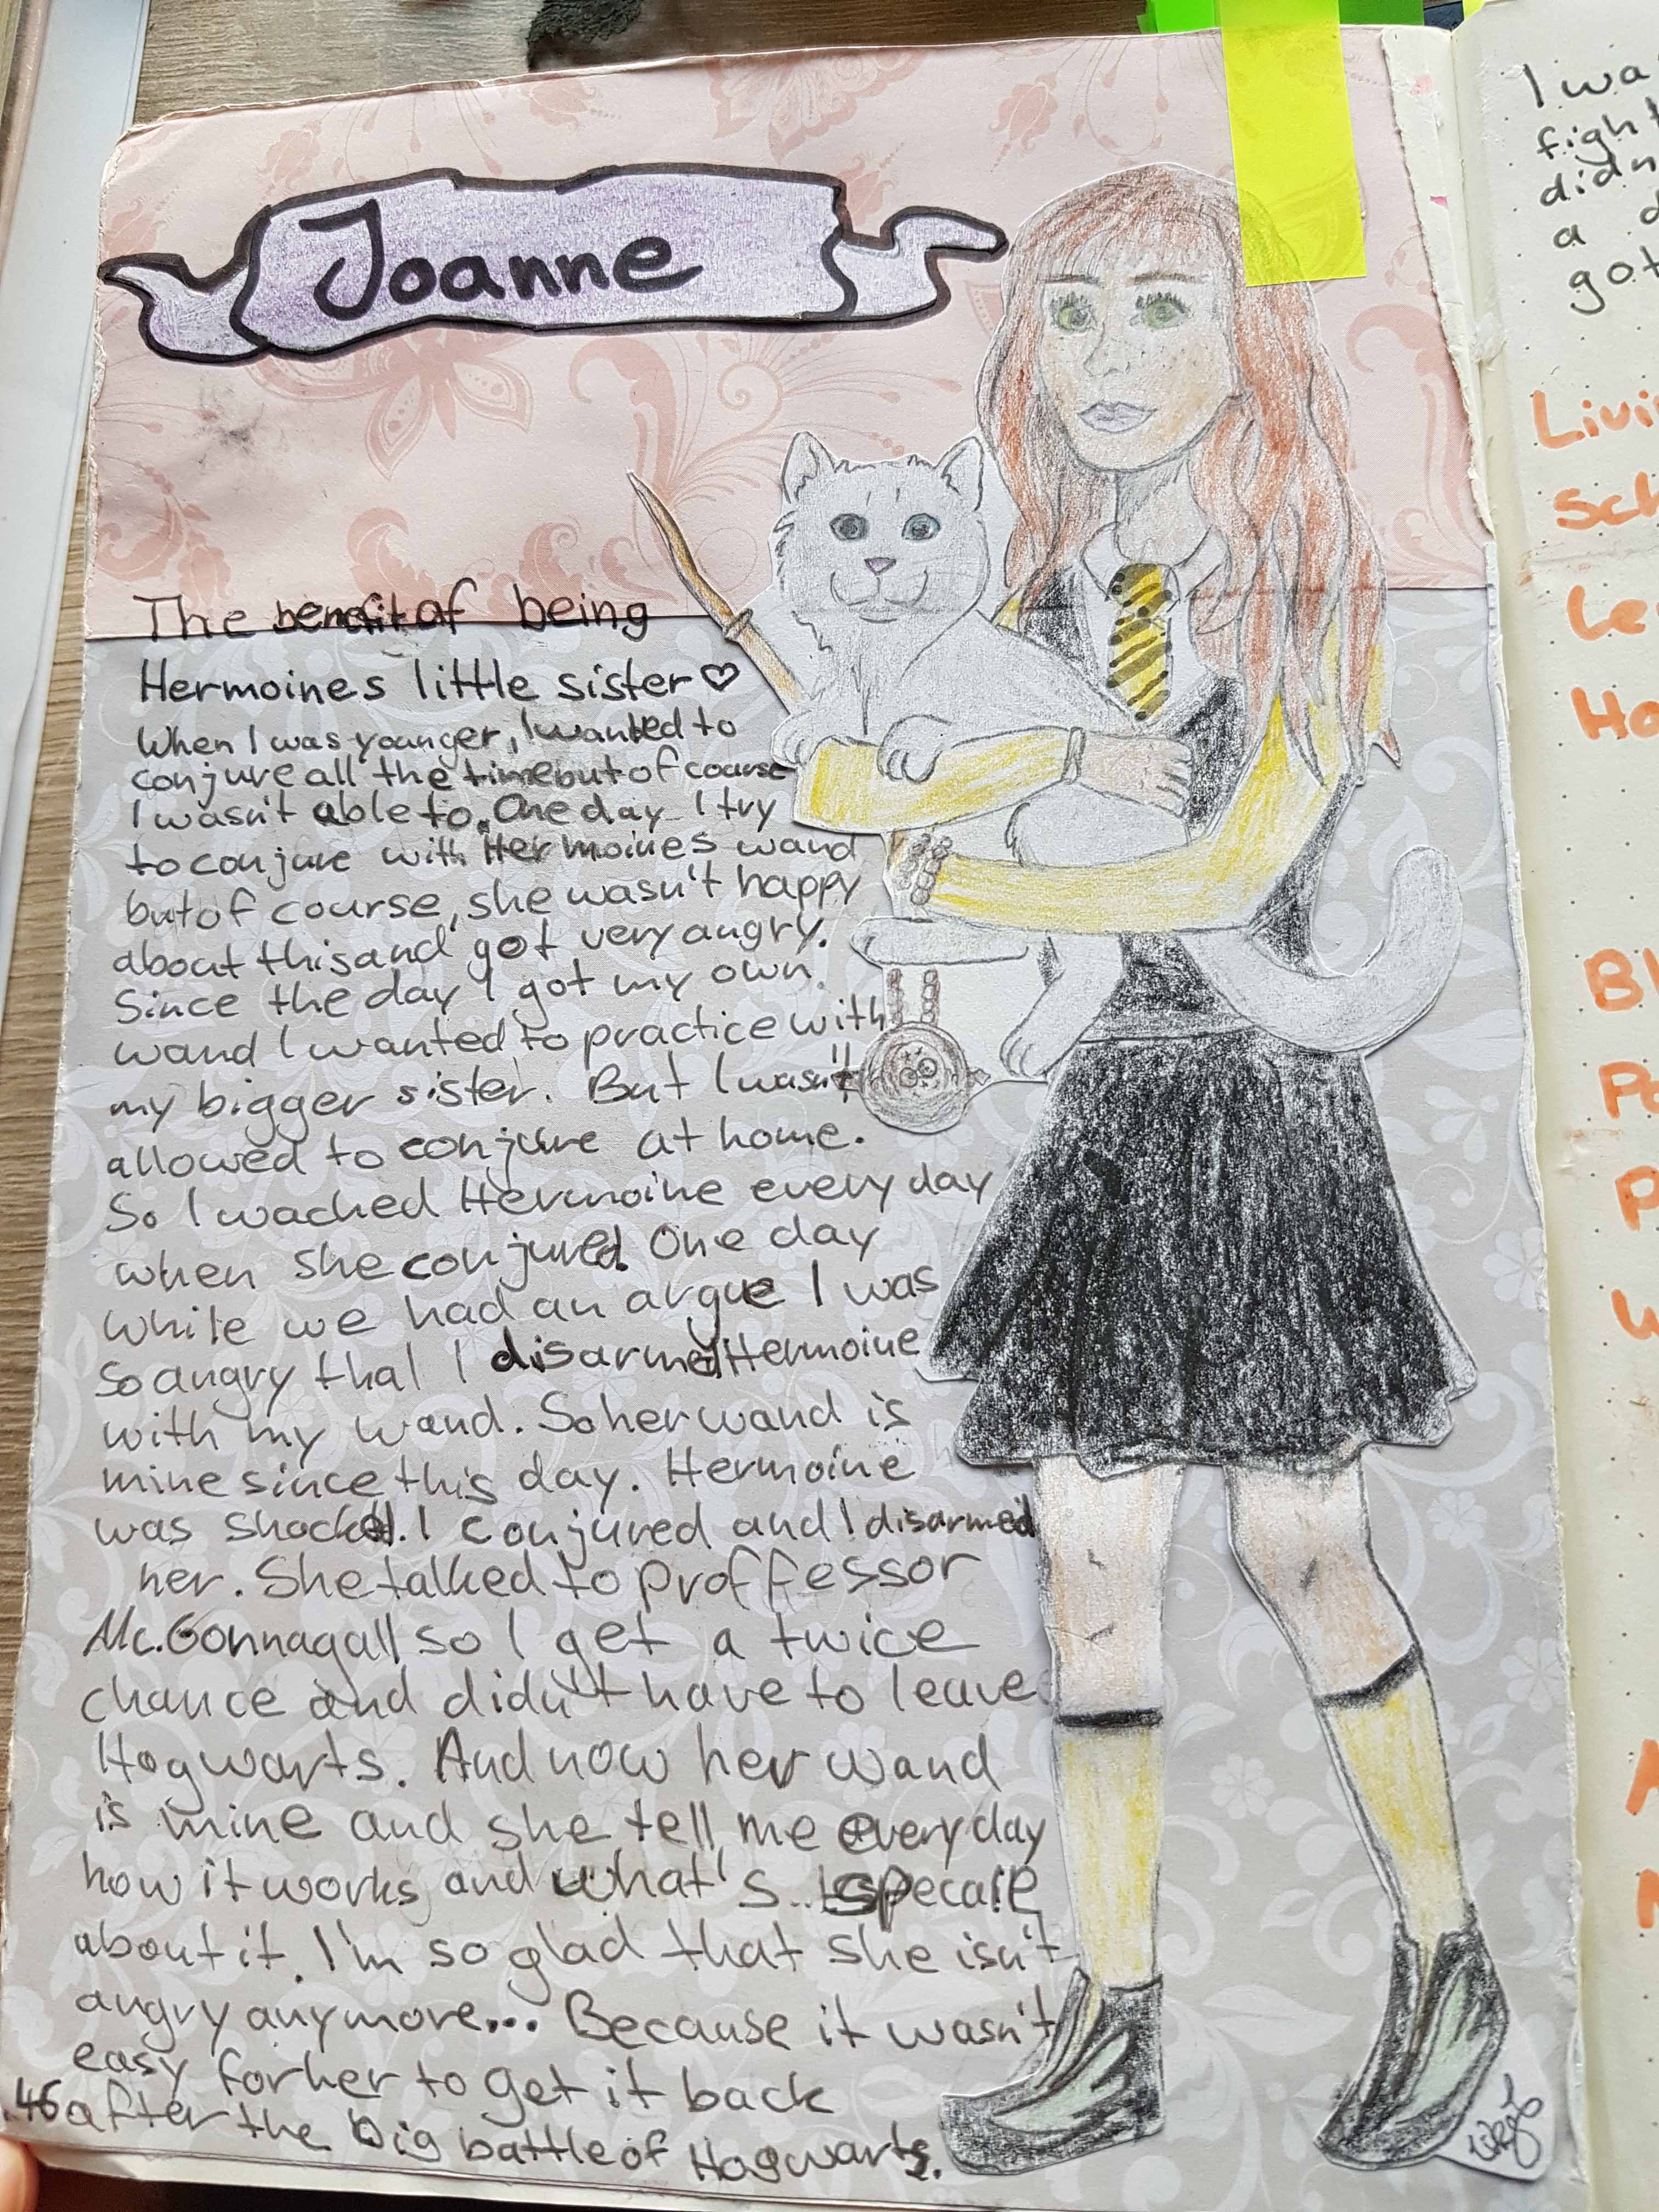 Joanne
The benefit of being
Hermoines little sister ♡
When I was younger, I wanted to
conjure all the time but of course
I wasn't able to. One day I try
to conjure with Hermoines wand
but of course, she wasn't happy
about this and got very angry.
Since the day I got my own
wand I wanted to practice with
my bigger sister. But I wasn't
allowed to conjure at home.
So I wached Hermoine every day
when she conjured. One day
while we had an argue I was
so angry that I disarmed Hermoine
with my wand. So her wand is
mine since this day. Hermoine
was shocked. I conjured and I disarmed
her. She talked to proffessor
Mc.Gonnagall so I get a twice
chance and didn't have to leave
Hogwarts. And now her wand
is mine and she tell me everyday
how it works and what's specaie
about it. I'm so glad that she isn't
angry anymore... Because it wasn't
easy for her to get it back
46 after the big battle of Hogwarts.
I wa
fight
didn
a d
got
Livi
Sch
Le
Ho
Bl
Pa
P
W
A